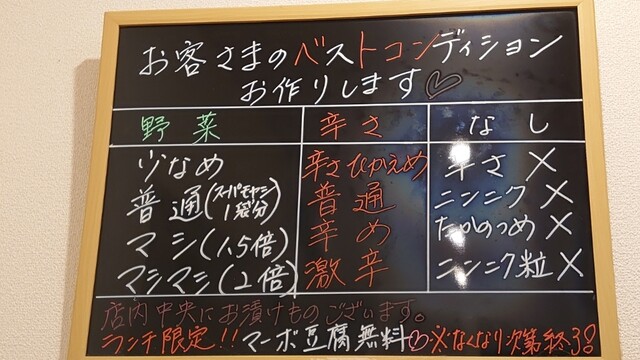 お客さまのベストコンディション
お作りします♡
野菜 辛さ なし
少なめ 辛さひかえめ 辛さ×
普通(スーパーモヤシ1袋分) 普通 ニンニク×
マシ(1.5倍) 辛め たかのつめ×
マシマシ(2倍) 激辛 ニンニク粒×
店内中央にお漬けものございます。
ランチ限定!!マーボ豆腐無料♡※なくなり次第終了!